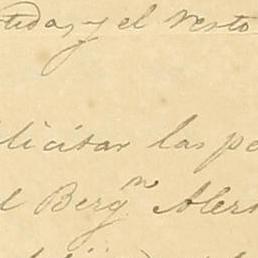 tida, y el resto
licitar las pe
l Bergn Alem